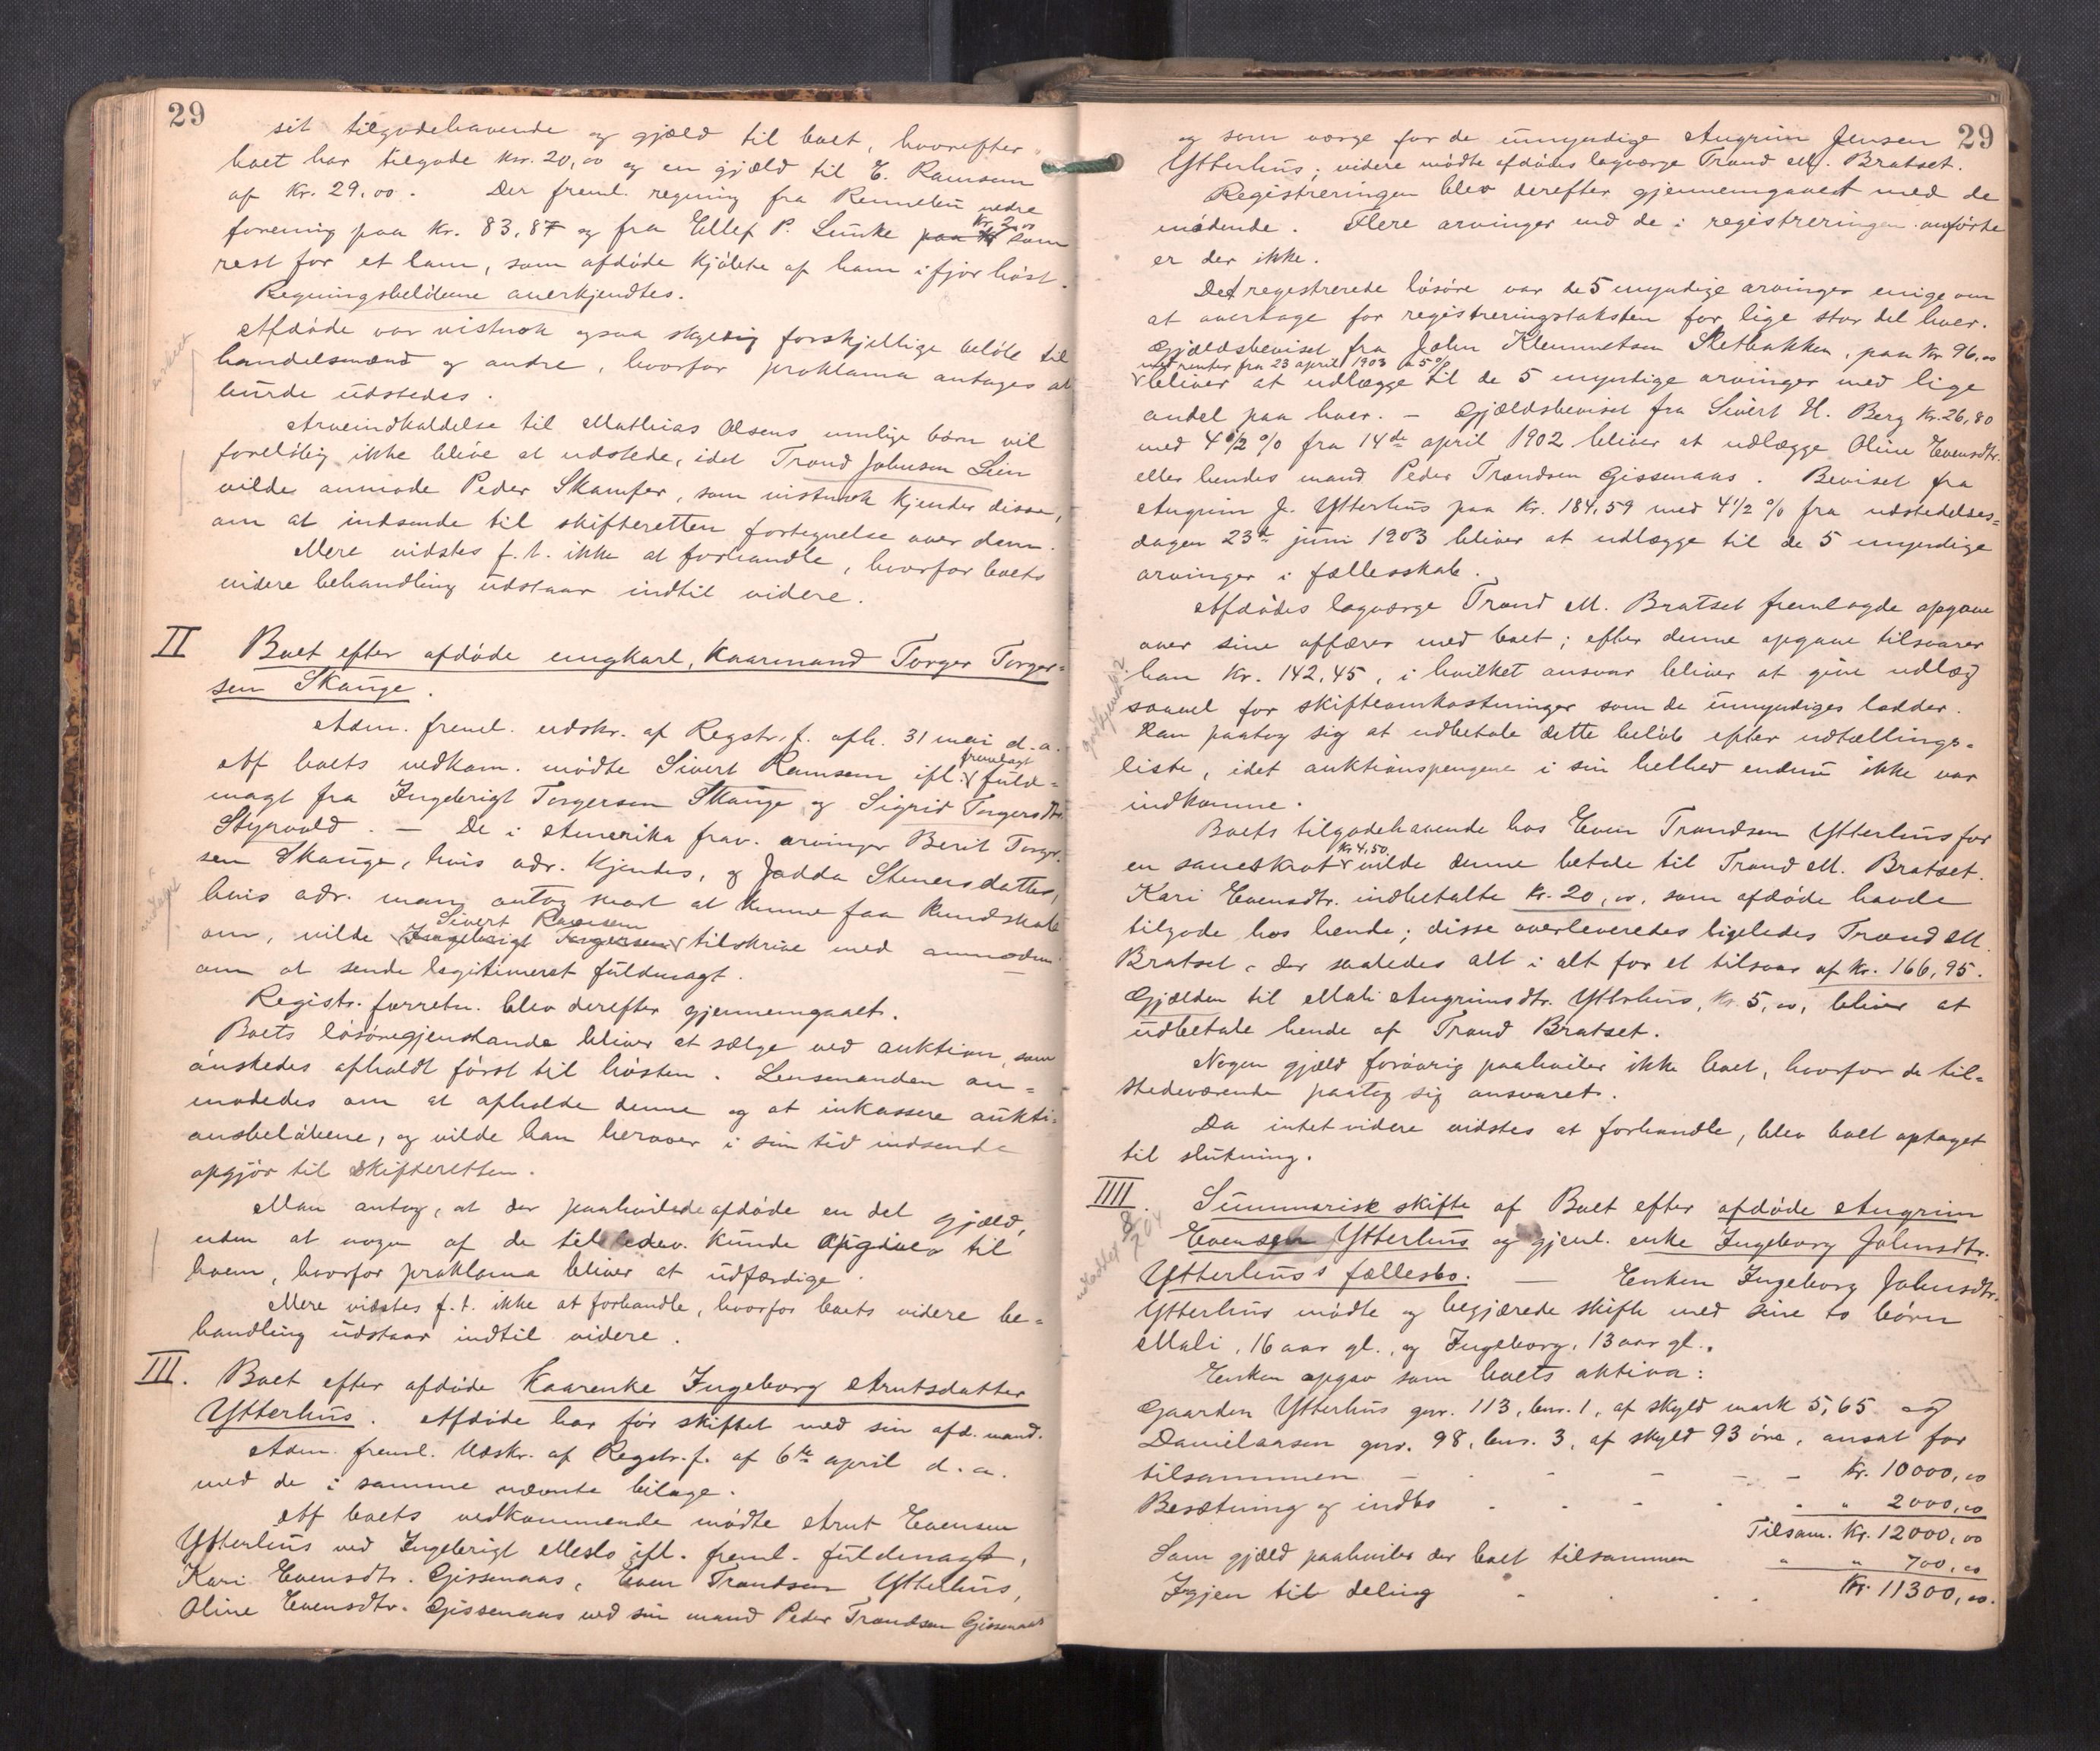 29
sit tilgodehavende og gjæld til boet, hvorefter
boet har tilgode kr. 20,00 og en gjæld til E. Ramsem
af Kr. 29,00. Der freml. regning fra Rennebu nedre
forening paa Kr. 83,87 og fra Ellef P. Lunke paa Kr. 2,00 som
rest for et lam, som afdøde kjøbte af ham ifjor høst.
Regningsbeløbene anerkjendtes.
Afdøde var vistnok ogsaa skyldig forskjellige beløb til
handelsmænd og andre, hvorfor proklama antages at
burde udstedes.
Arveindkaldelse til Mathias Olsens umlige børn vil
foreløbig ikke blive at udstede, idet Trond Johnsen Lien
vilde anmode Peder Skamfer, som vistnok kjender disse,
om at indsende til skifteretten fortegnelse over dem.
Mere vidstes f.t. ikke at forhandle, hvorfor boets
videre behandling udstaar indtil videre.
II Boet efter afdøde ungkarl, Kaarmand Torger Torger-
sen Skauge.
Adm. freml. udskr. af Regstr. f. afh. 31 mai d. a.
Af boets vedkom. mødte Sivert Ramsem ifl. fremlagt fuld-
magt fra Ingebrigt Torgersen Skauge og Sigrid Torgersdtr.
Styrvold. — De i Amerika frav. arvinger Berit Torger-
sen Skauge, hvis adr. kjendes, og Jodda Stenersdatter,
hvis adr. man antog snart at kunne faa kundskab
om, vilde Ingebrigt Torgersen Sivert Ramsem tilskrive med anmodn.
om at sende legitimeret fuldmagt.
Registr. forretn. blev derefter gjennemgaaet.
Boets løsøregjenstande bliver at sælge ved auktion, som
ønskedes afholdt først til høsten. Lensmanden an-
modedes om at afholde denne og at inkassere aukti-
onsbeløbene, og vilde han herover i sin tid indsende
opgjør til skifteretten.
Man antog, at der paahvilede afdøde en del gjæld,
uden at nogen af de tilstedev. kunde opgive til
hvem, hvorfor proklama bliver at udfærdige.
Mere vidstes f.t. ikke at forhandle, hvorfor boets videre be-
handling udstaar indtil videre.
III. Boet efter afdøde Kaarenke Ingeborg Arntsdatter
Ytterhus. Afdøde har før skiftet med sin afd. mand.
Adm. freml. Udskr. af Regstr. f. af 6te april d. a.
med de i samme nævnte bilage.
Af boets vedkommende mødte Arnt Evensen
Ytterhus ved Ingebrigt Meslo ifl. freml. fuldmagt,
Kari Evensdtr. Gissenaas, Even Trondsen Ytterhus,
Oline Evensdtr. Gissenaas ved sin mand Peder Trondsen Gissenaas
29
og som værge for de umyndige Angrim Jensen
Ytterhus; videre mødte afdødes lagværge Trond M. Bratset.
Registreringen blev derefter gjennemgaaet med de
mødende. Flere arvinger end de i registreringen anførte
er der ikke.
Det registrerede løsøre var de 5 myndige arvinger enige om
at overtage for registreringstaksten for lige stor del hver.
Gjældsbeviset fra John Klemmetsen Sletbakken, paa Kr. 96,00
med renter fra 23 april 1903 à 5 %
bliver at udlægge til de 5 myndige arvinger med lige
andel paa hver. — Gjældsbeviset fra Sivert H. Berg Kr. 26,80
med 4 1/2 % fra 14de april 1902 bliver at udlægge Oline Evensdtr.
eller hendes mand Peder Trondsen Gissenaas. Beviset fra
Angrim J. Ytterhus paa Kr. 184,59 med 4 1/2 % fra udstedelses-
dagen 23de juni 1903 bliver at udlægge til de 5 myndige
arvinger i fællesskab.
Afdødes lagværge Trond M. Bratset fremlagde opgave
over sine affærer med boet; efter denne opgave tilsvarer
han Kr. 142,45, i hvilket ansvar bliver at give udlæg
saavel for skifteomkostninger som de umyndiges lodder.
Han paatog sig at udbetale dette beløb efter udtællings-
liste, idet auktionspengene i sin helhed endnu ikke var
indkomne.
Boets tilgodehavende hos Even Trondsen Ytterhus for
en saueskrot Kr 4,50. vilde denne betale til Trond M. Bratset.
Kari Evensdtr. indbetalte Kr. 20,00, som afdøde havde
tilgode hos hende; disse overleveredes ligeledes Trond M.
Bratset, der saaledes alt i alt for et tilsvar af Kr. 166,95.
Gjælden til Mali Angrimsdtr. Ytterhus, Kr. 5,00, bliver at
udbetale hende af Trond Bratset.
Nogen gjæld forøvrig paahviler ikke boet, hvorfor de til-
stedeværende paatog sig ansvaret.
Da intet videre vidstes at forhandle, blev boet optaget
til slutning.
IIII. Summarisk skifte af Boet efter afdøde Angrim
Evensen Ytterhus og gjenl. enke Ingeborg Johnsdtr.
Ytterhus's fællesbo. — Enken Ingeborg Johnsdtr.
Ytterhus mødte og begjærede skifte med sine to børn
Mali, 16 aar gl., og Ingeborg, 13 aar gl..
Enken opgav som boets aktiva:
Gaarden Ytterhus gnr. 113, bnr. 1, af skyld mark 5,65 og
Danielaasen gnr. 98, bnr. 3, af skyld 93 øre, ansat for
tilsammen - - - - - Kr. 10000,00
Besætning og indbo - - - - " 2000,00
Tilsam. Kr. 12000,00
Som gjæld paahviler der boet tilsammen " " 700,00
Igjen til deling - - - Kr. 11300,00.